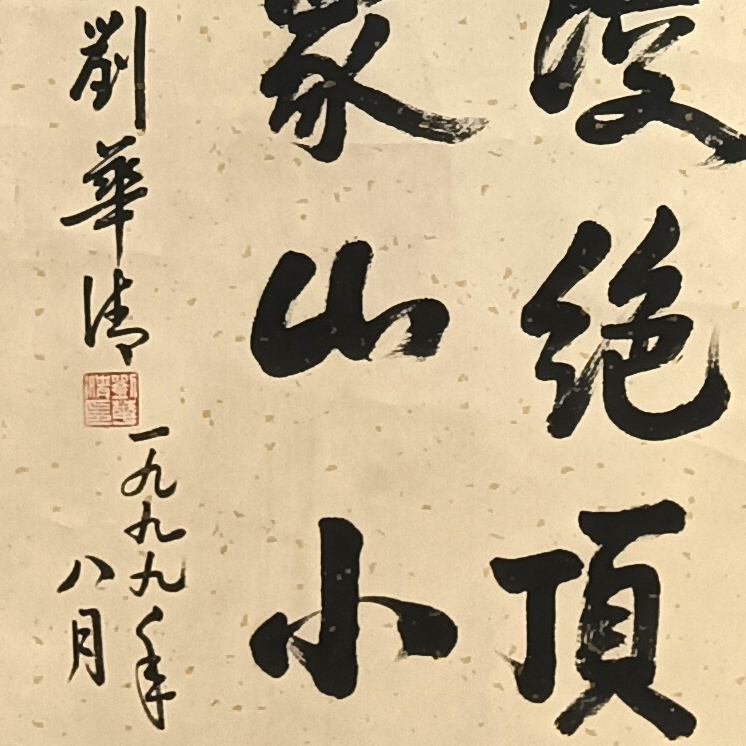 凌絶頂
衆山小
劉華清
一九九九年
八月